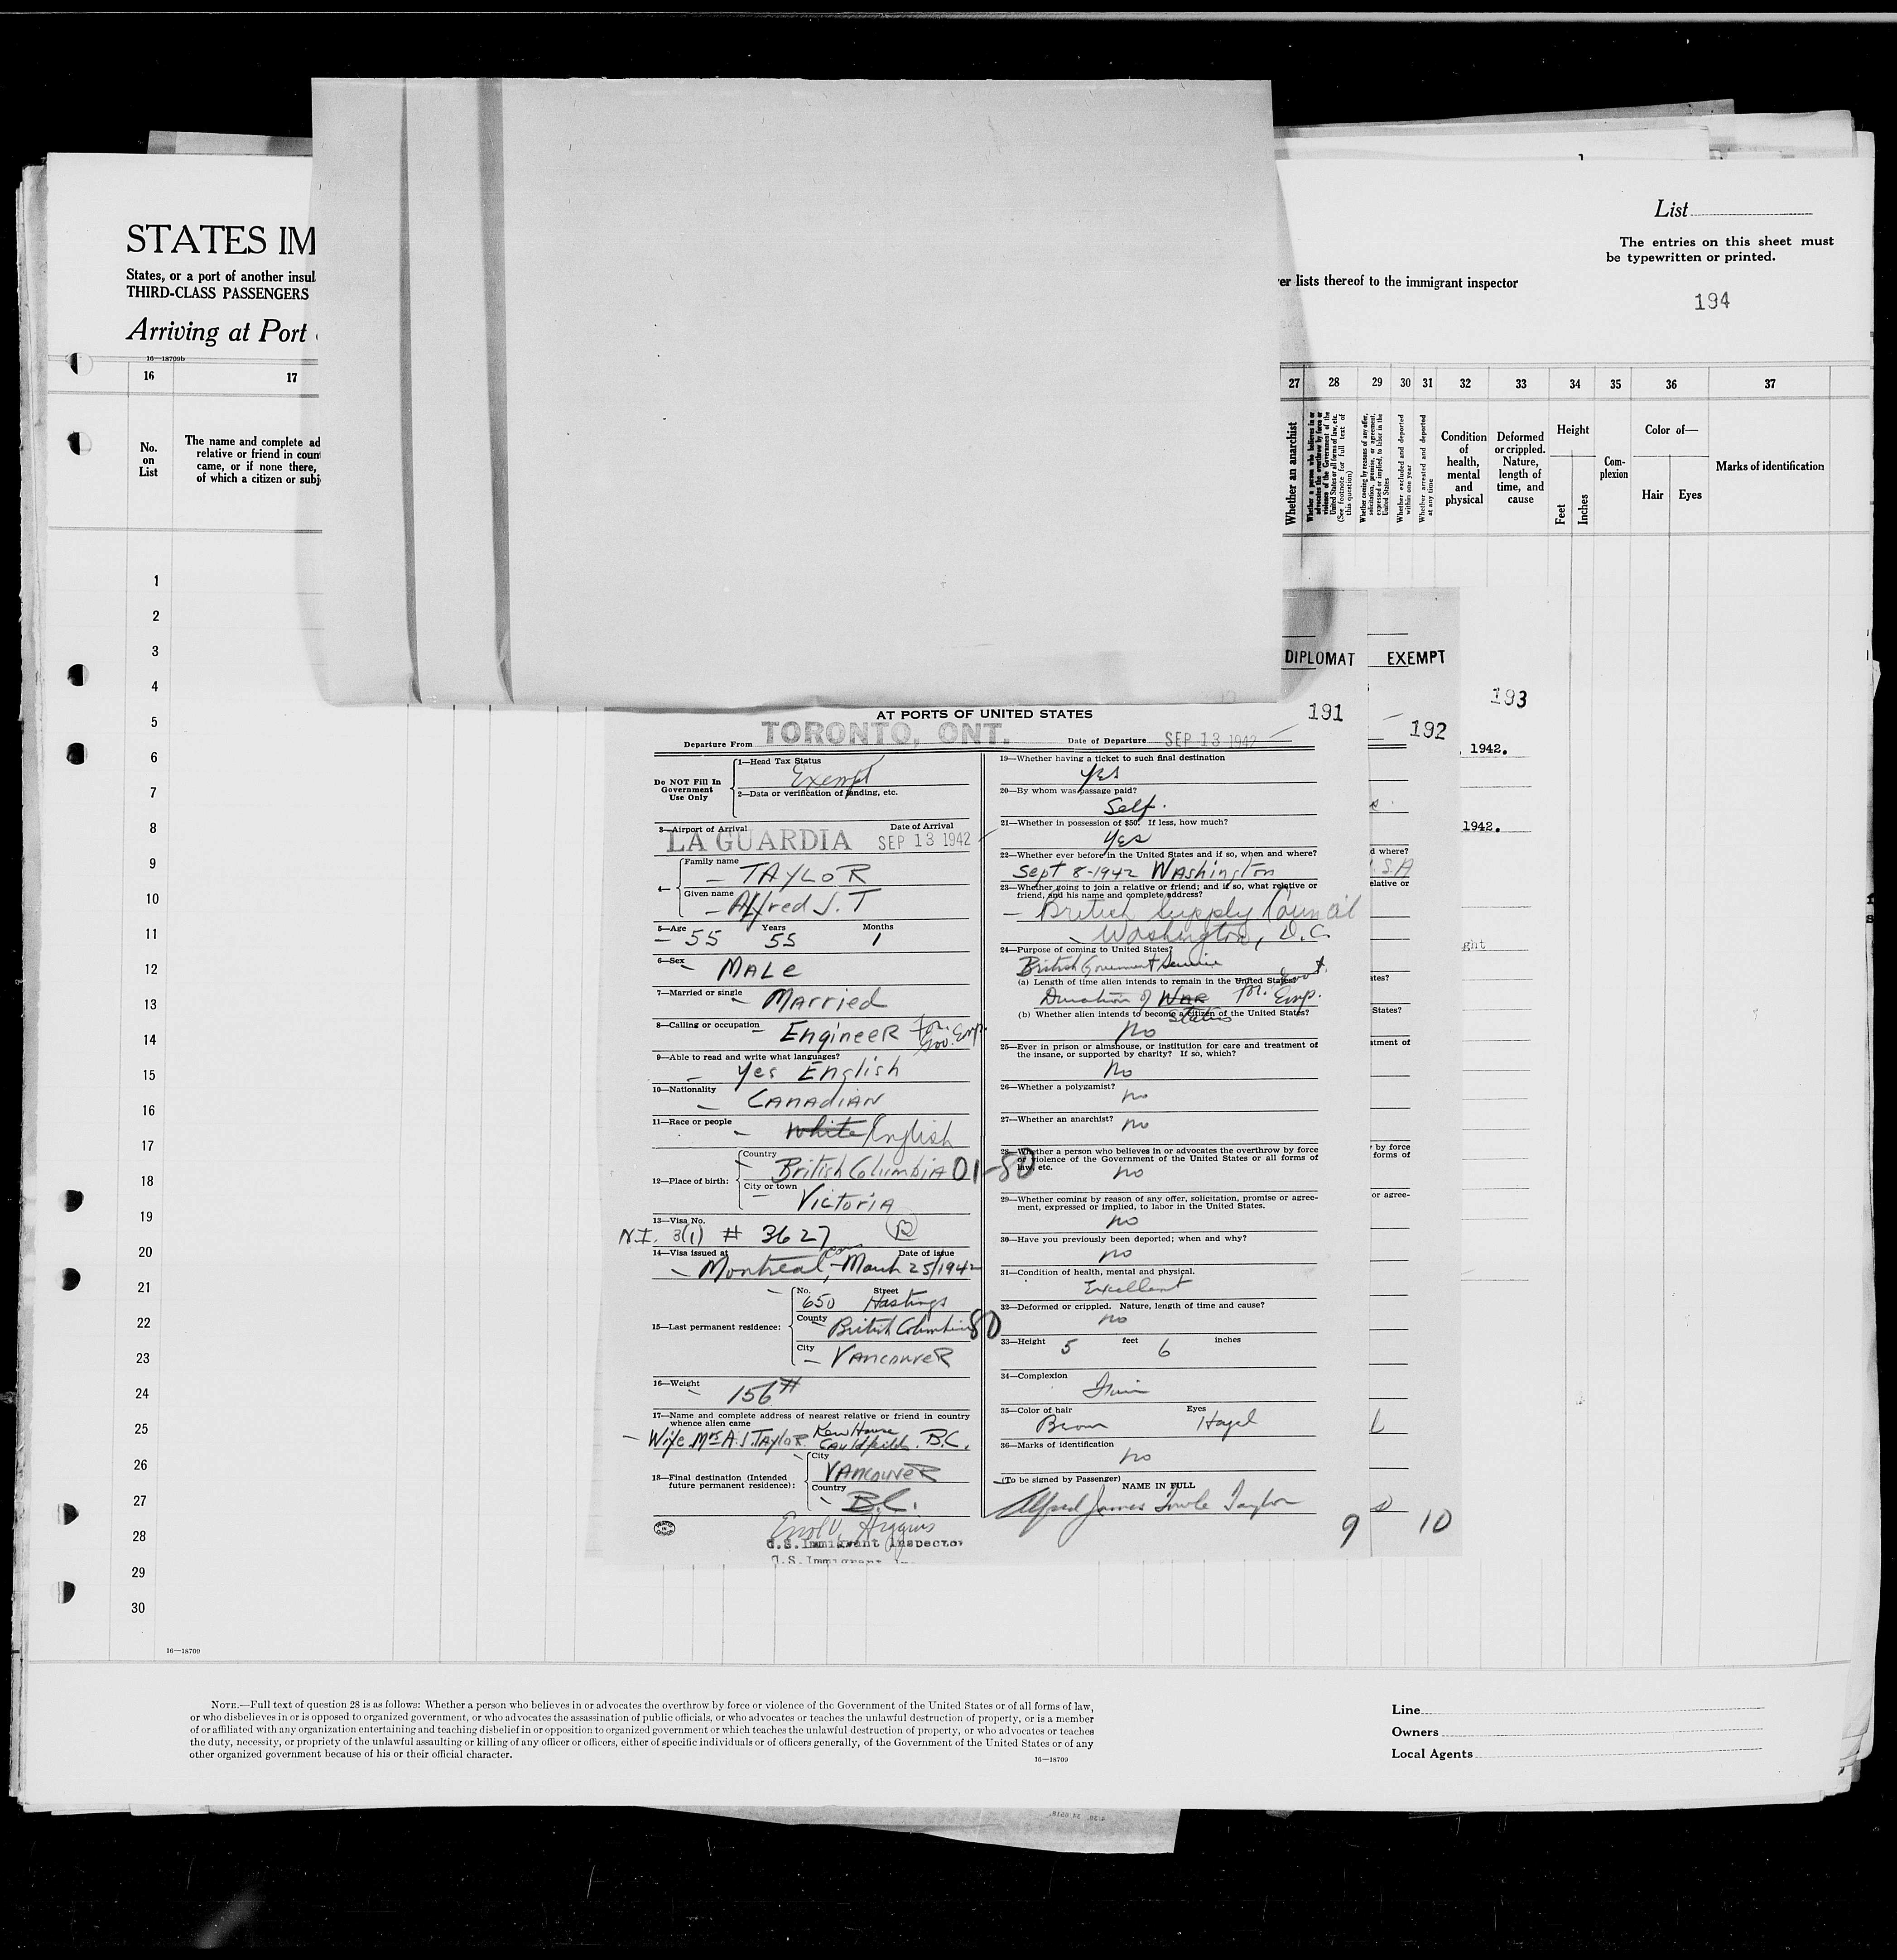 STATES IM
States, or a port of another insul
THIRD-CLASS PASSENGERS
Arriving at Port
16—18709b
List
The entries on this sheet must
be typewritten or printed.
er lists thereof to the immigrant inspector
194
16
17
27
28
29
30
31
32
33
34
35
36
37
No.
on
List
The name and complete ad
relative or friend in coun
came, or if none there,
of which a citizen or subj
Whether an anarchist
Whether a person who believes in or
advocates the overthrow by force or
violence of the Government of the
United States or all forms of law, etc.
(See footnote for full text of
this question)
Whether coming by reasons of any offer,
solicitation, promise, or agreement,
expressed or implied, to labor in the
United States
Whether excluded and deported
within one year
Whether arrested and deported
at any time
Condition
of
health,
mental
and
physical
Deformed
or crippled.
Nature,
length of
time, and
cause
Height
Feet
Inches
Com-
plexion
Color of—
Hair
Eyes
Marks of identification
1
2
3
4
5
6
7
8
9
10
11
12
13
14
15
16
17
18
19
20
21
22
23
24
25
26
27
28
29
30
DIPLOMAT
EXEMPT
191
192
193
1942.
1942.
AT PORTS OF UNITED STATES
Departure From TORONTO, ONT.
Date of Departure SEP 13 1942
Do NOT Fill In
Government
Use Only
1—Head Tax Status
Exempt
2—Data or verification of landing, etc.
3—Airport of Arrival
Date of Arrival
LA GUARDIA SEP 13 1942
4—
Family name
— TAYLOR
Given name
— Alfred J. T
5—Age Years Months
— 55 55 1
6—Sex
MALe
7—Married or single
Married
8—Calling or occupation
EngineeR for. Gov. Emp.
9—Able to read and write what languages?
Yes English
10—Nationality
CANADIAN
11—Race or people
White English
12—Place of birth:
Country
British Columbia 01-80
City or town
Victoria
13—Visa No.
N.I. 3(1) # 3627
B
14—Visa issued at
Date of issue
Montreal, Can March 25/1942
15—Last permanent residence:
No. Street
650 Hastings
County
British Columbia 80
City
VancouveR
16—Weight
156#
17—Name and complete address of nearest relative or friend in country
whence alien came
Wife Mrs A.J. TAylor Kew House
Cauldfields. B.C.
18—Final destination (Intended
future permanent residence):
City
VANCOUVER
Country
B.C.
Higgins
U.S. Immigrant Inspector
19—Whether having a ticket to such final destination
Yes
20—By whom was passage paid?
Self.
21—Whether in possession of $50. If less, how much?
Yes
22—Whether ever before in the United States and if so, when and where?
Sept 8-1942 Washington
23—Whether going to join a relative or friend; and if so, what relative or
friend, and his name and complete address?
— British Supply Council
Washington, D.C.
24—Purpose of coming to United States?
British Government Service
(a) Length of time alien intends to remain in the United States?
Duration of War status for. Govt. Emp.
(b) Whether alien intends to become a citizen of the United States?
No
25—Ever in prison or almshouse, or institution for care and treatment of
the insane, or supported by charity? If so, which?
No
26—Whether a polygamist?
no
27—Whether an anarchist?
no
28—Whether a person who believes in or advocates the overthrow by force
or violence of the Government of the United States or all forms of
law, etc.
no
29—Whether coming by reason of any offer, solicitation, promise or agree-
ment, expressed or implied, to labor in the United States.
no
30—Have you previously been deported; when and why?
no
31—Condition of health, mental and physical.
Excellent
32—Deformed or crippled. Nature, length of time and cause?
no
33—Height 5 feet 6 inches
34—Complexion
Fair
35—Color of hair
Eyes
Brown
Hazel
36—Marks of identification
no
(To be signed by Passenger)
NAME IN FULL
Alfred James Towle Taylor
9
10
d where?
S.A
elative or
ght
tes?
States?
tment of
by force
forms of
or agree-
16—18709
NOTE.—Full text of question 28 is as follows: Whether a person who believes in or advocates the overthrow by force or violence of the Government of the United States or of all forms of law,
or who disbelieves in or is opposed to organized government, or who advocates the assassination of public officials, or who advocates or teaches the unlawful destruction of property, or is a member
of or affiliated with any organization entertaining and teaching disbelief in or opposition to organized government or which teaches the unlawful destruction of property, or who advocates or teaches
the duty, necessity, or propriety of the unlawful assaulting or killing of any officer or officers, either of specific individuals or of officers generally, of the Government of the United States or of any
other organized government because of his or their official character.
16—18709
Line
Owners
Local Agents